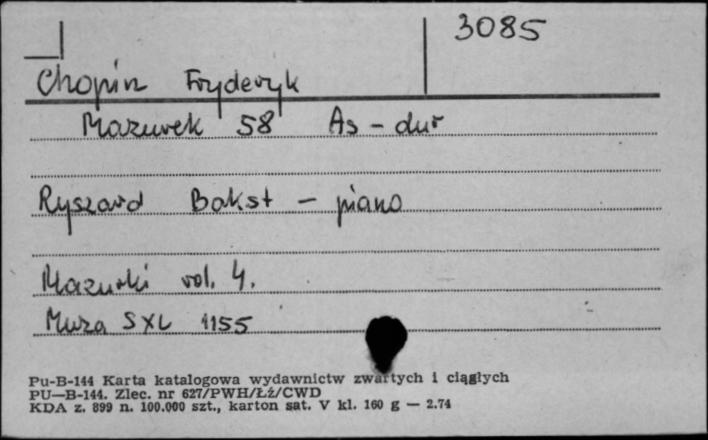 3085
Chopin Fryderyk
Mazurek 58 As-dur
Ryszard Bakst - piano
Mazurki vol. 4.
Muza SXL 1155
Pu-B-144 Karta katalogowa wydawnictw zwartych i ciągłych
PU—B-144. Zlec. nr 627/PWH/ŁŻ/CWD
KDA z. 899 n. 100.000 szt., karton sat. V kl. 160 g — 2.74